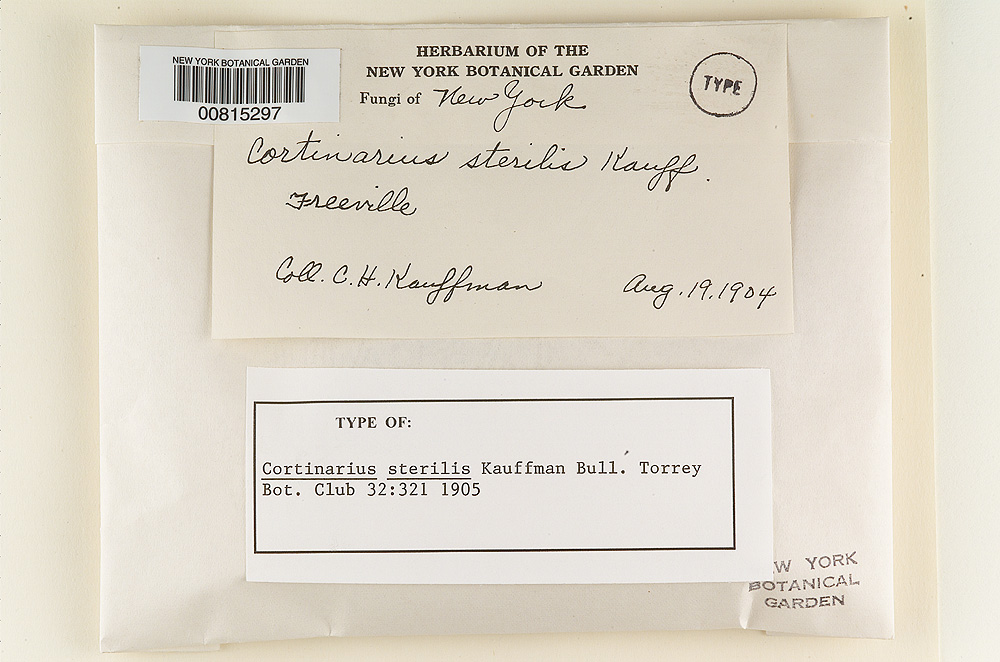 NEW YORK BOTANICAL GARDEN
00815297
HERBARIUM OF THE
NEW YORK BOTANICAL GARDEN
Fungi of New York
TYPE
Cortinarius sterilis Kauff.
Freeville
Coll. C. H. Kauffman Aug. 19, 1904
TYPE OF:
Cortinarius sterilis Kauffman Bull. Torrey
Bot. Club 32:321 1905
W YORK
BOTANICAL
GARDEN